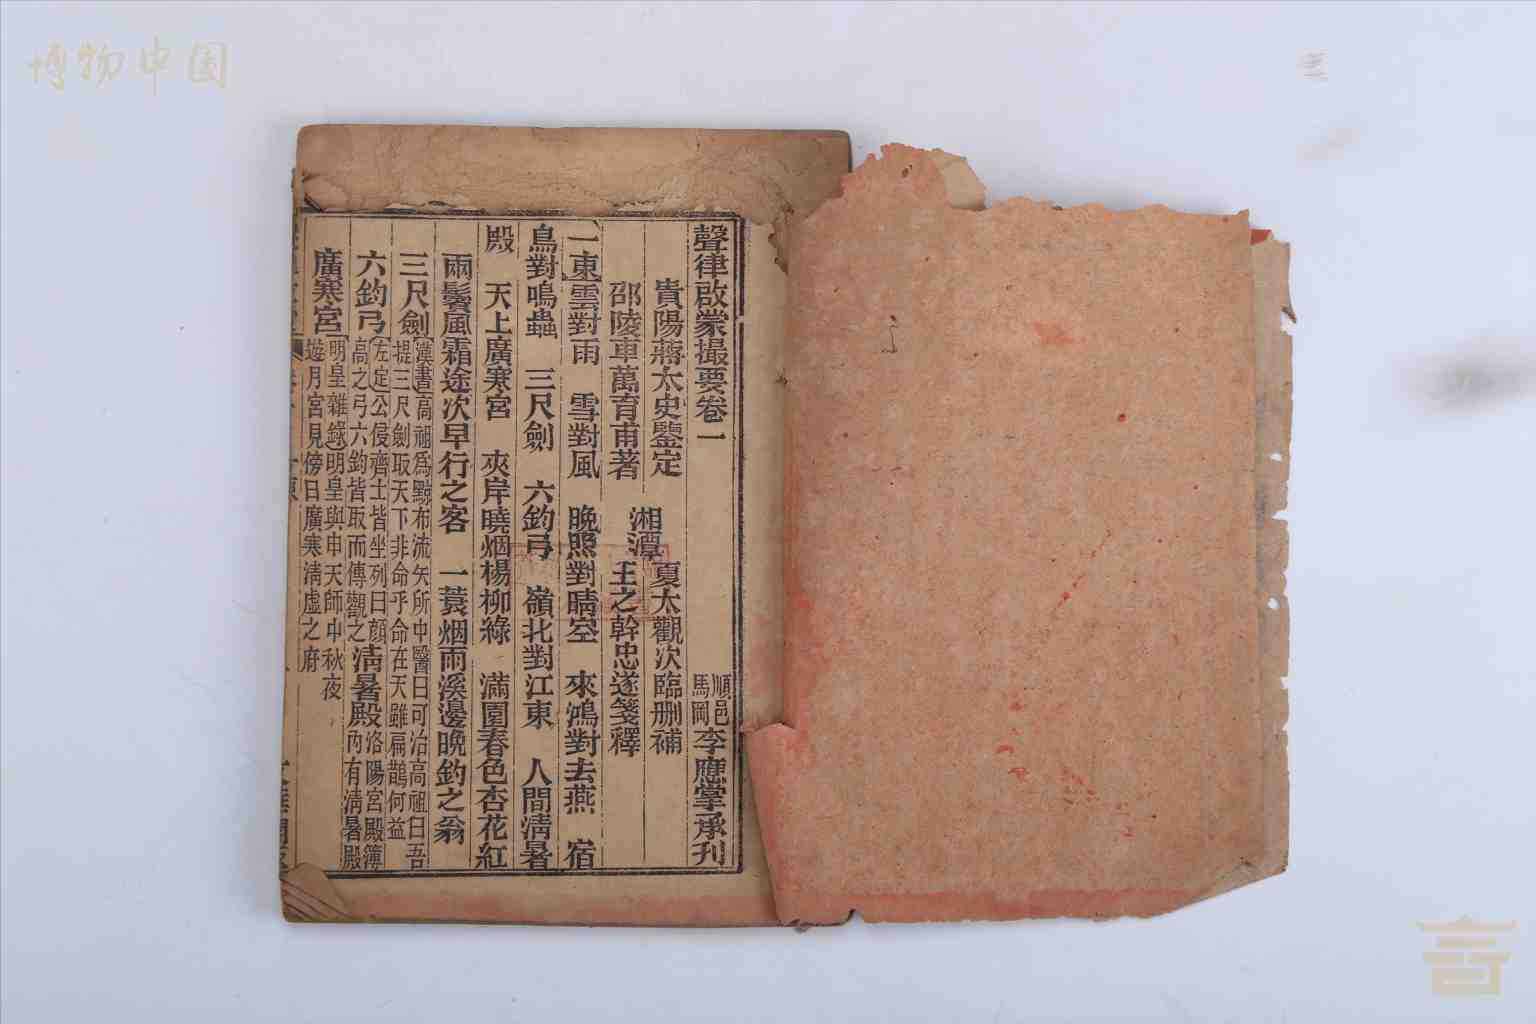 博物中国
聲律啟蒙撮要卷一 順邑馬岡李應掌承刋
貴陽蔣太史鑒定 湘潭夏大觀次臨删補
邵陵車萬育甫著 湘潭王之幹忠遂箋釋
一東雲對雨 雪對風 晚照對晴空 來鴻對去燕 宿
鳥對鳴蟲 三尺劍 六鈞弓 嶺北對江東 人間淸暑
殿 天上廣寒宮 夾岸曉烟楊柳綠 滿園春色杏花紅
兩鬢風霜途次早行之客 一蓑烟雨溪邊晚釣之翁
三尺劍漢書高祖為黥布流矢所中醫曰可治高祖曰吾提三尺劍取天下非命乎命在天雖扁鵲何益
六鈞弓左定公侵齊士皆坐列曰顔高之弓六鈞皆取而傳觀之淸暑殿洛陽宮殿簿內有淸暑殿
廣寒宮明皇雜錄明皇與申天師中秋夜遊月宮見傍曰廣寒淸虛之府